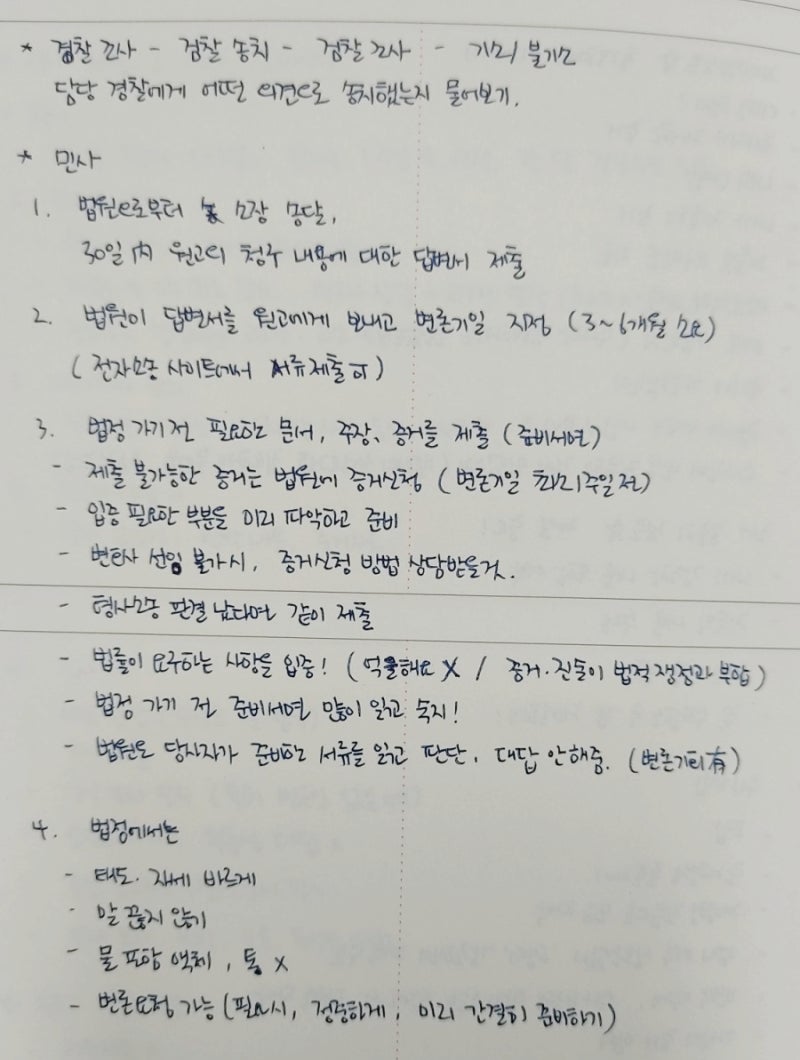 * 경찰 조사 - 검찰 송치 - 검찰 조사 - 기소 불기소
담당 경찰에게 어떤 의견으로 송치했는지 물어보기.
* 민사
1. 법원으로부터 소장 송달,
30일 內 원고의 청구 내용에 대한 답변서 제출
2. 법원이 답변서를 원고에게 보내고 변론기일 지정 (3~6개월 소요)
(전자소송 사이트에서 서류제출 可)
3. 법정 가기 전 필요한 문서, 주장, 증거를 제출 (준비서면)
- 제출 불가능한 증거는 법원에 증거신청 (변론기일 최소 1주일 전)
- 입증 필요한 부분을 미리 파악하고 준비
- 변호사 선임 불가시, 증거신청 방법 상담받을것.
- 형사소송 판결 났다면 같이 제출
- 법률이 요구하는 사항을 입증! (억울해요 X / 증거·진술이 법적 쟁점과 부합)
- 법정 가기 전 준비서면 많이 읽고 숙지!
- 법원도 당사자가 준비한 서류를 읽고 판단, 대답 안해줌. (변론기회 有)
4. 법정에서는
- 태도·자세 바르게
- 말 끊지 않기
- 물 포함 액체, 통 X
- 변론요청 가능 (필요시, 정중하게, 미리 간결히 준비하기)